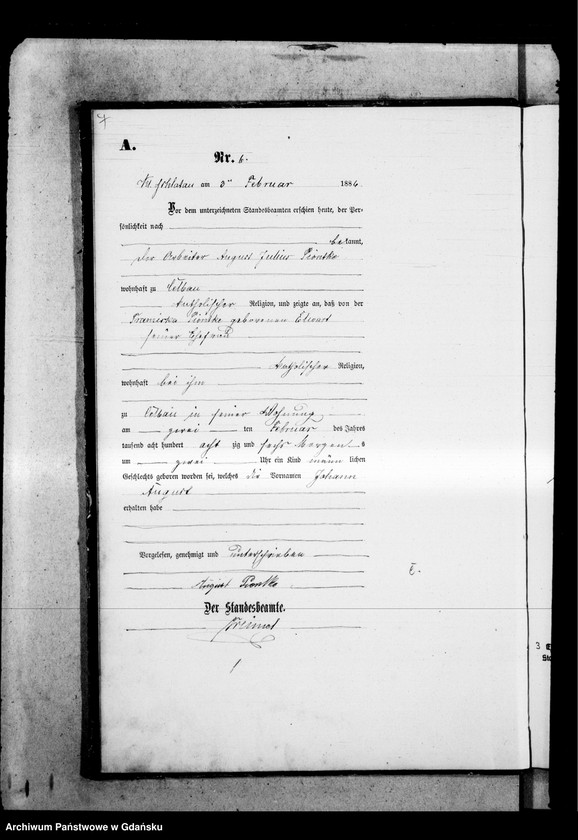 A.
Nr. 6.
Kl. Schlatau am 3ten Februar 1886
Vor dem unterzeichneten Standesbeamten erschien heute, der Per-
sönlichkeit nach
bekannt,
der Arbeiter August Julius Piontke
wohnhaft zu Cölbau
katholischer Religion, und zeigte an, daß von der
Franziska Piontke geborenen
seiner Ehefrau
katholischer Religion,
wohnhaft bei ihm
zu Cölbau in seiner Wohnung
am zwei ten Februar des Jahres
tausend acht hundert acht zig und sechs Morgens
um zwei Uhr ein Kind männlichen
Geschlechts geboren worden sei, welches die Vornamen Johann
August
erhalten habe
Vorgelesen, genehmigt und unterschrieben
August Piontke
Der Standesbeamte.
3
Archiwum Państwowe w Gdańsku